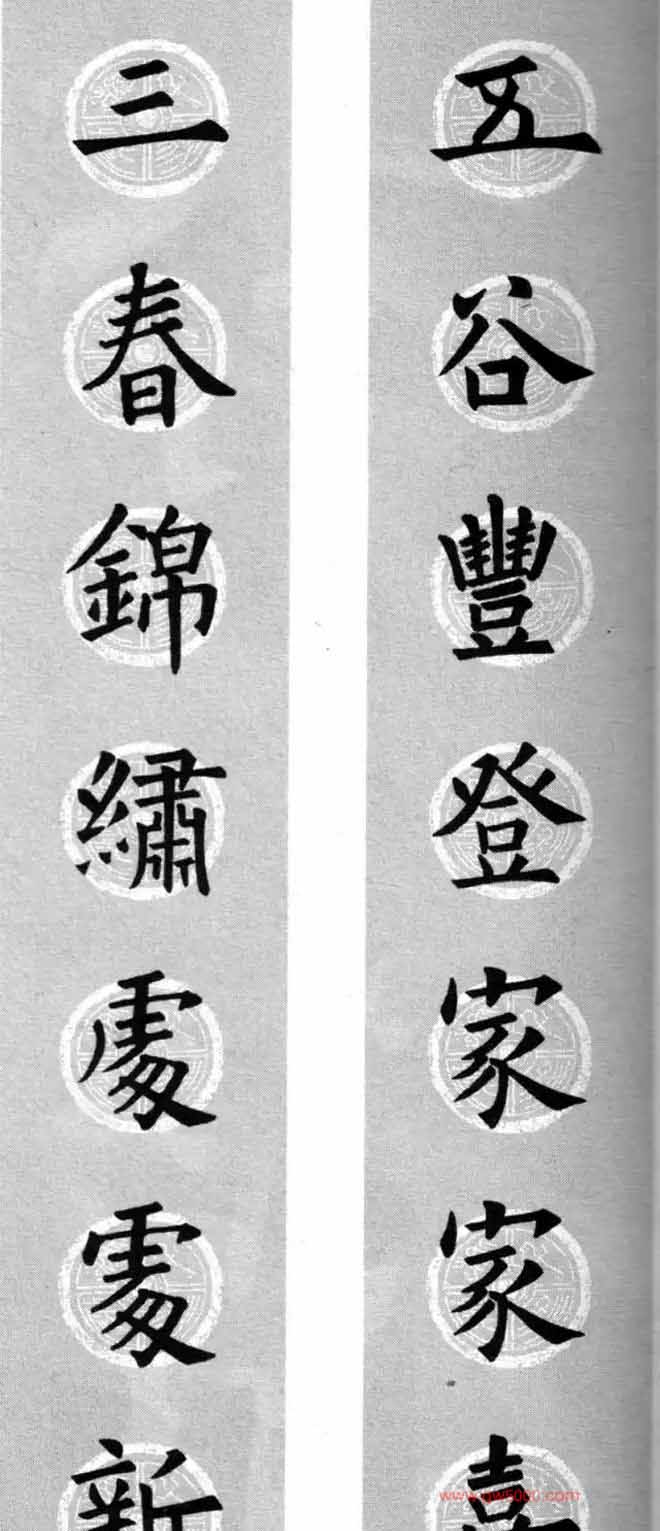 五谷豐登家家喜
三春錦繡處處新
www.qw5000.com